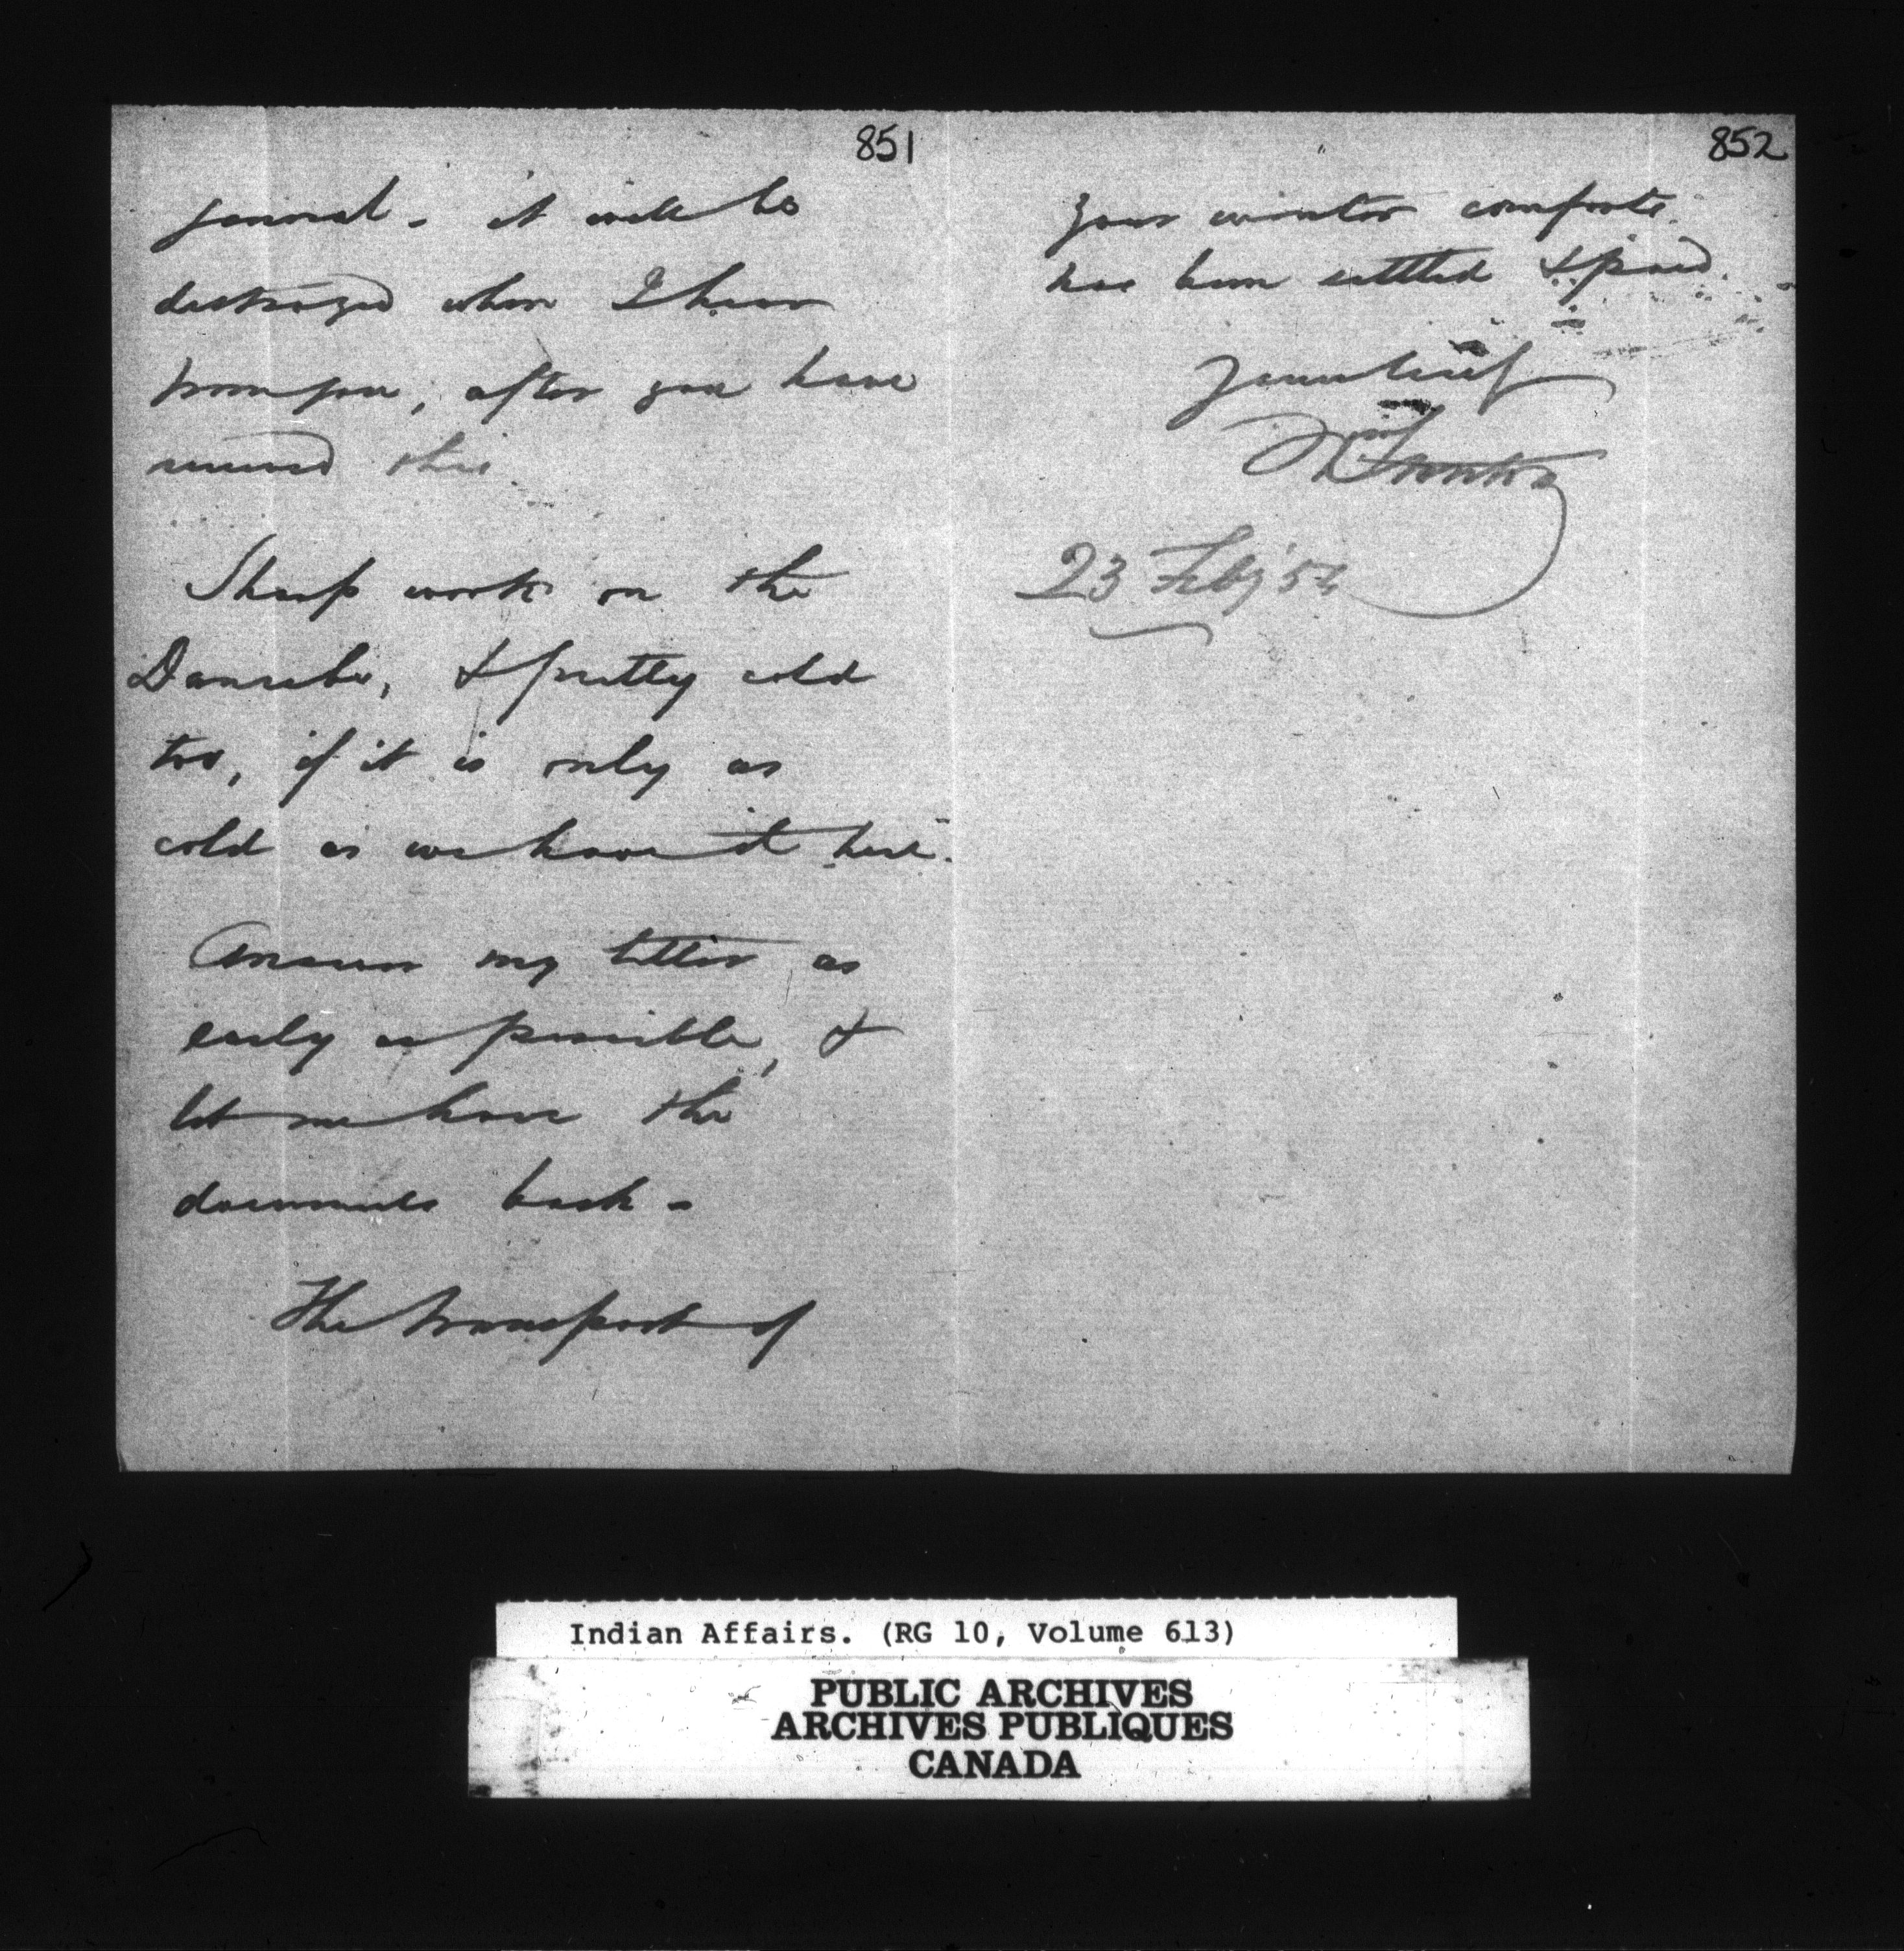 851
journal. it will be
destroyed when I hear
from you, after you have
received this
Sharp work on the
Danube, & pretty cold
too, if it is only as
cold as we have it here.
Answer my letter as
early as possible, &
let me have the
documents back -
The transport of
852
your winter comforts
has been settled & paid.
Yours truly
23 Feby '54
Indian Affairs. (RG 10, Volume 613)
PUBLIC ARCHIVES
ARCHIVES PUBLIQUES
CANADA